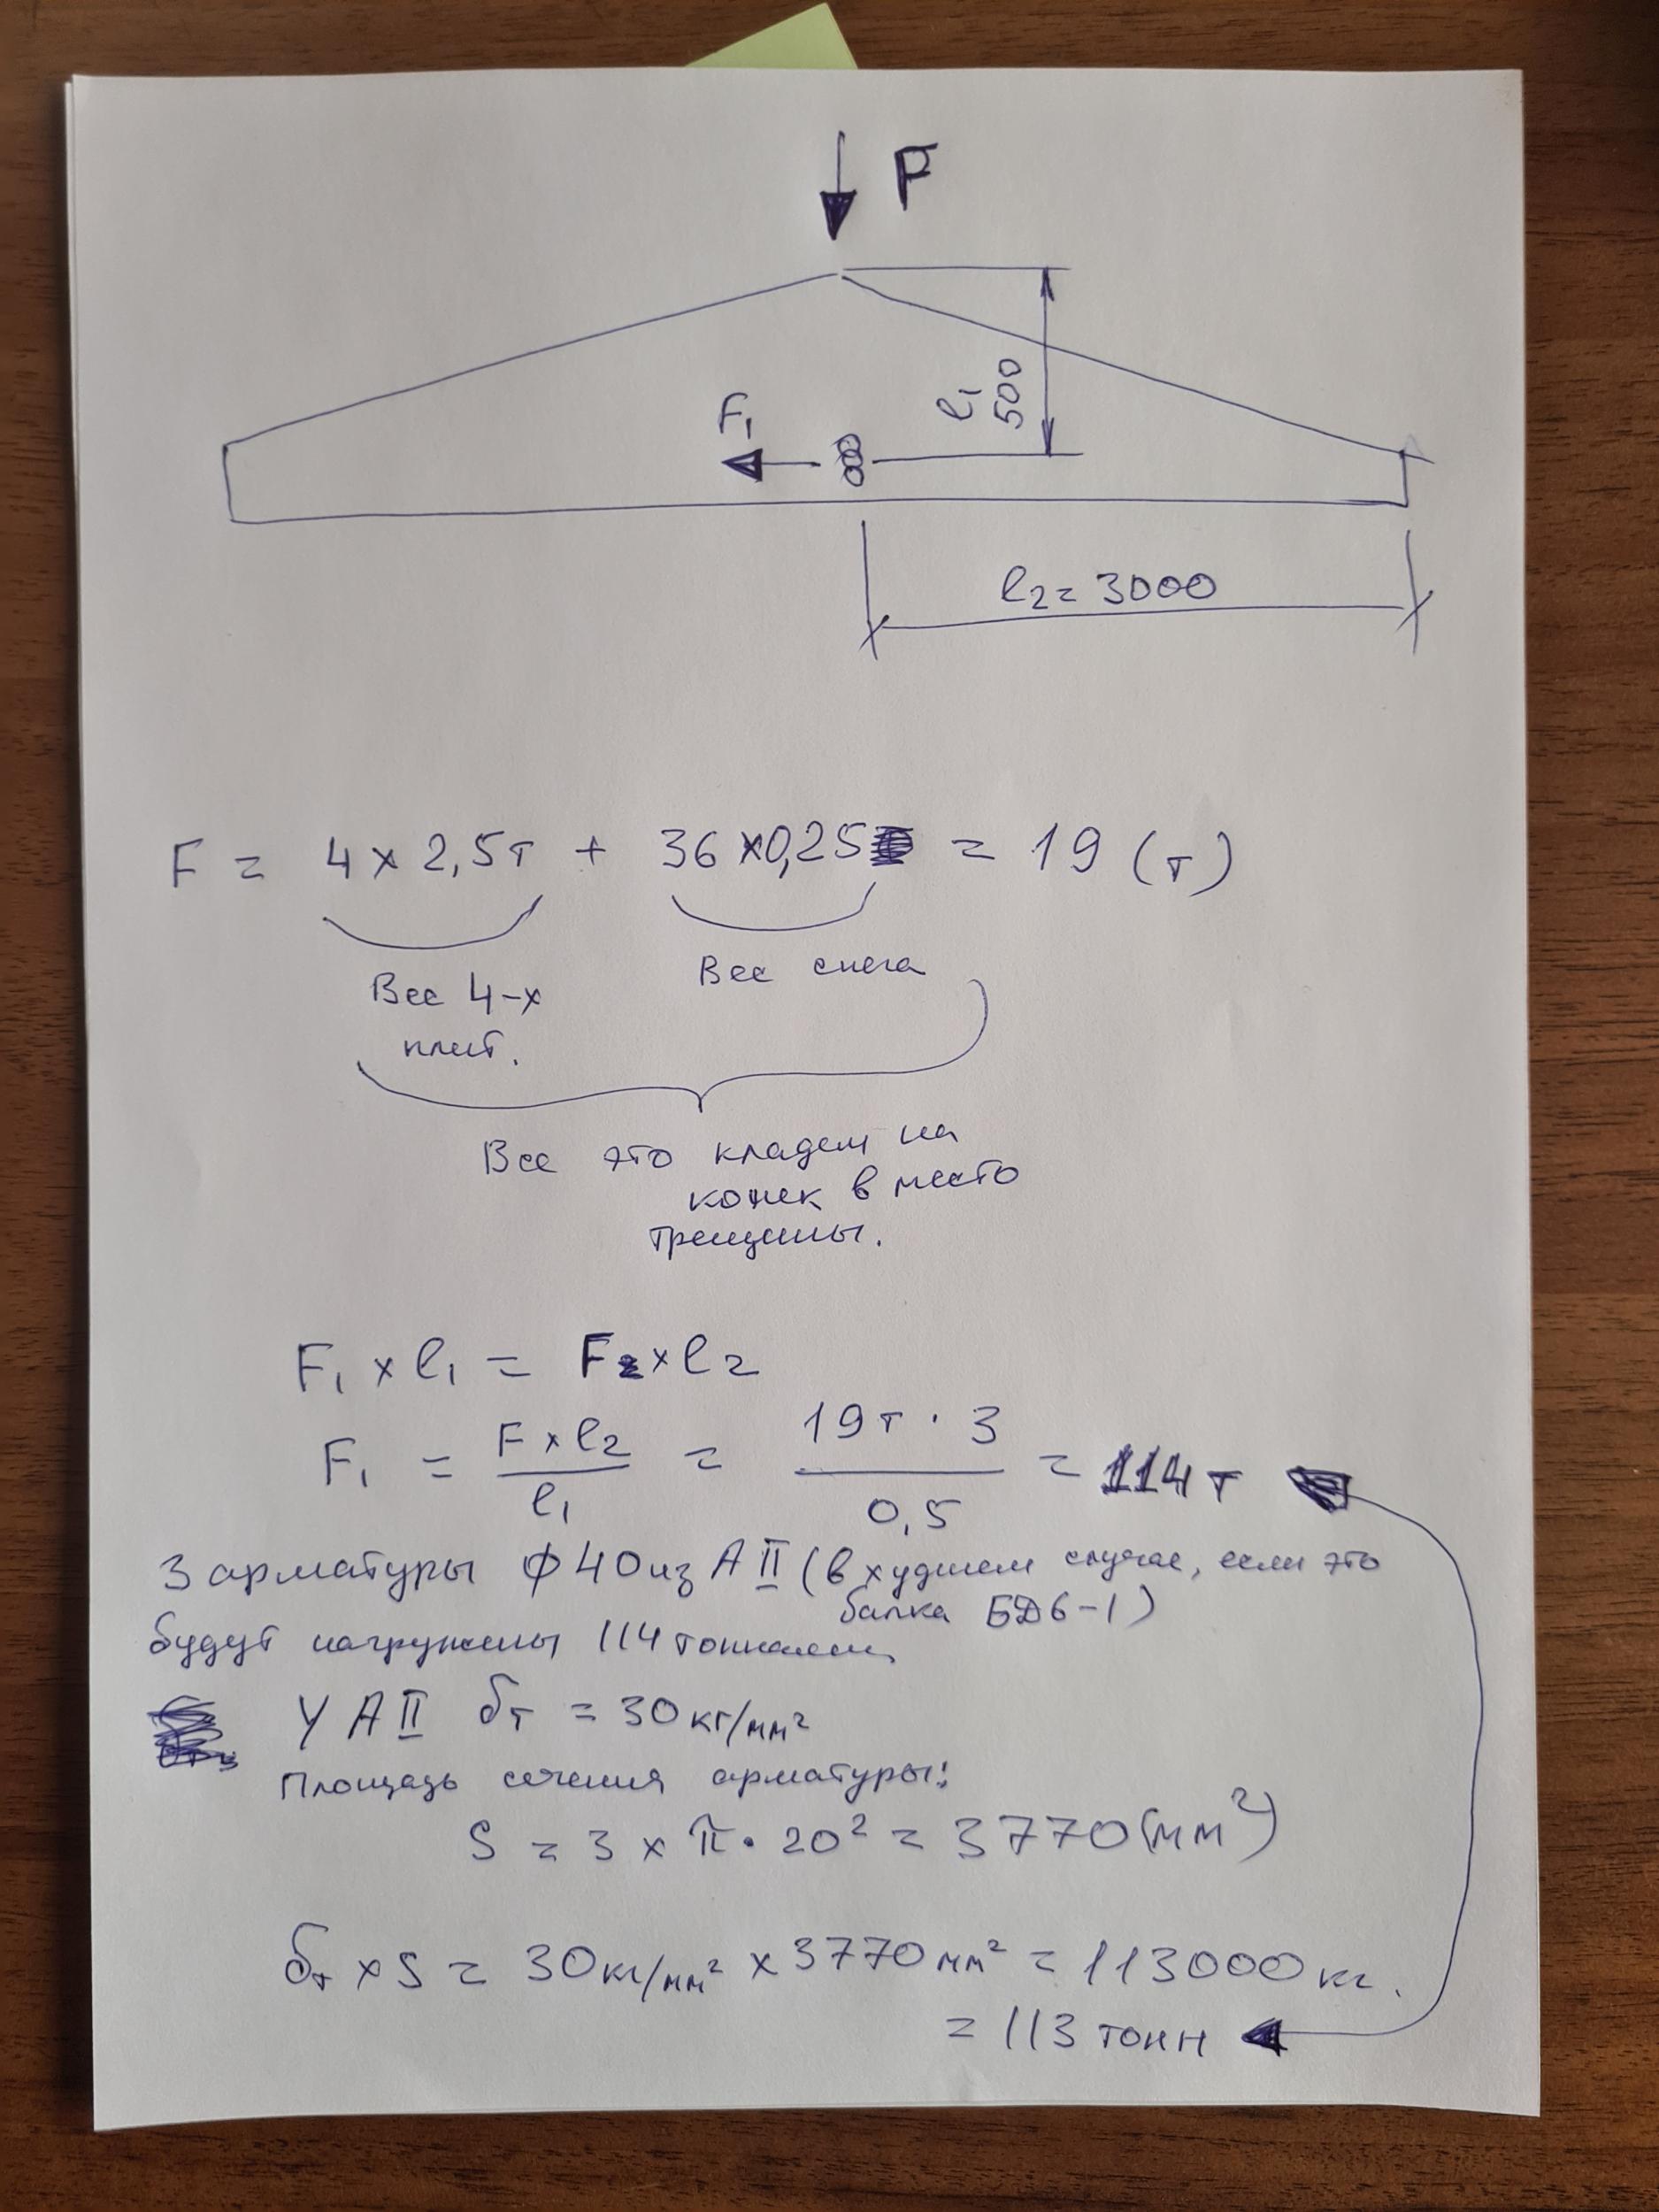 F
F₁
l₁
500
l₂ = 3000
F = 4 х 2,5т + 36 х 0,25 = 19 (т)
Вес снега
Вес 4-х
плит.
Все это кладем на
конек в место
трещины.
F₁ x l₁ = F₂ x l₂
F₁ = F x l₂ / l₁ = 19т · 3 / 0,5 = 114 т
3 арматуры ф40 из А II (в худшем случае, если это
балка БД6-1)
будут нагружены 114 тоннами
У А II бт = 30 кг/мм²
Площадь сечения арматуры:
S = 3 x π · 20² = 3770 (мм²)
бт x S = 30 кг/мм² x 3770 мм² = 113000 кг.
= 113 тонн